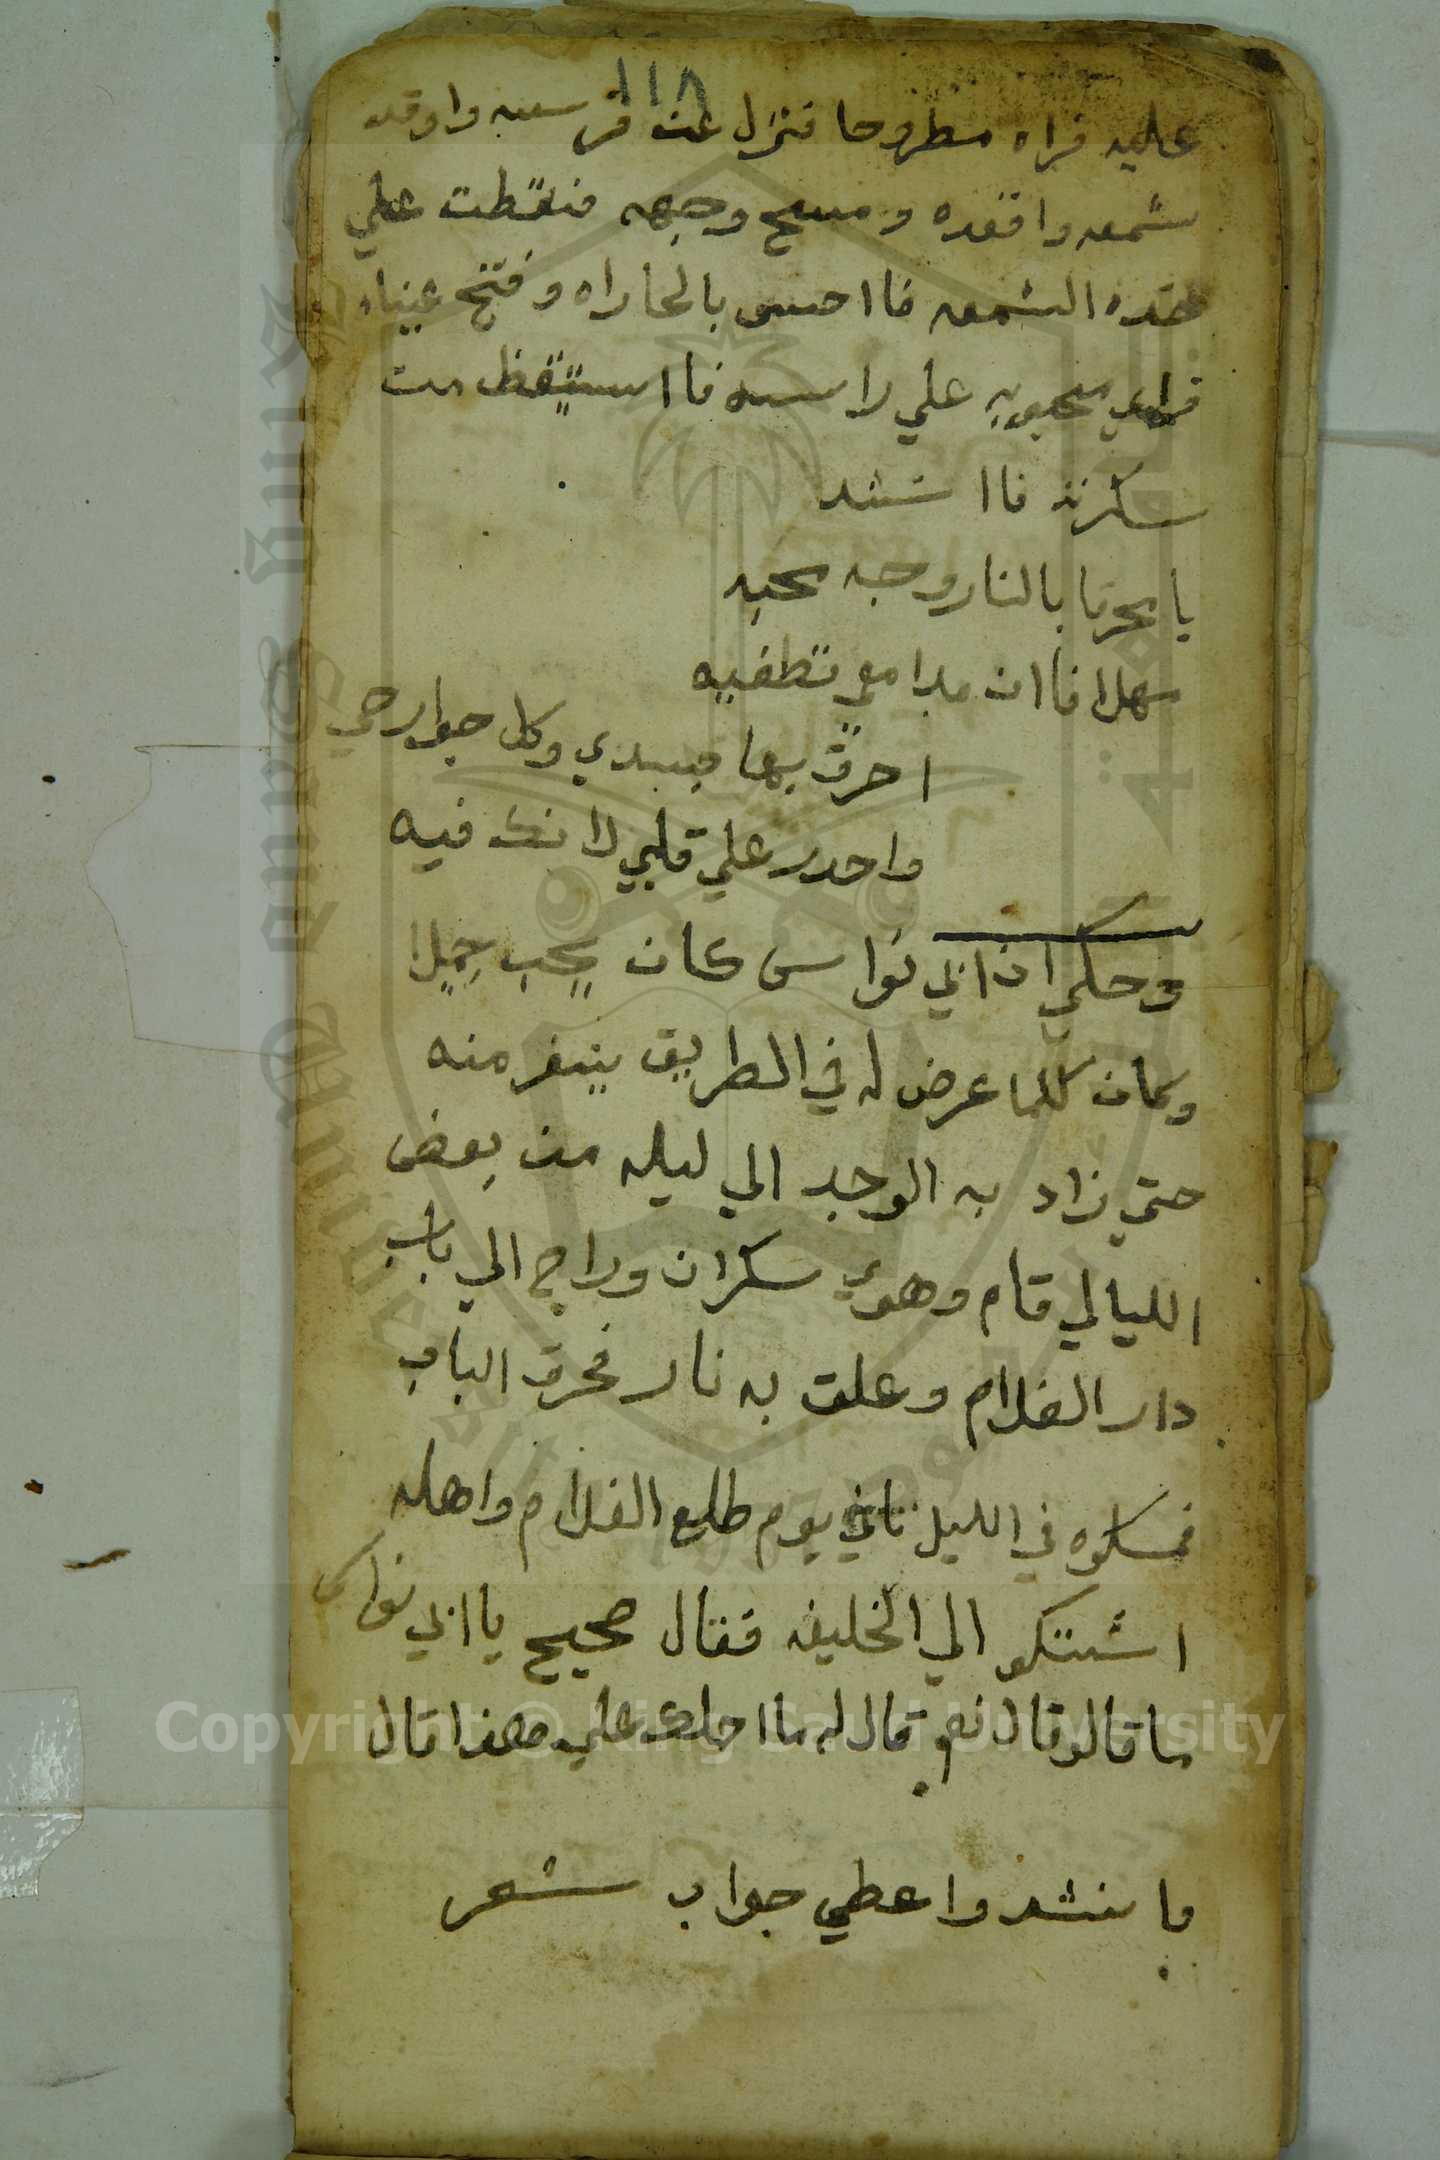 ١١٨
عليه فراه مطروحا فنزل عن فرسه واوقد
شمعه وافقده ومسح وجهه فنقطت علي
خده الشمعه فااحس بالحاراه وفتح عيناه
فراي محبوبه علي راسه فااستيقظ من
سكرته فاانشد
يا محرقا بالنار وجه محبه
مهلا فاان مدامعي تطفيه
احرق بها جسدي وكل جوارحي
واحدر علي قلبي لانك فيه
وحكي ان ابي نواس كان يحب جميلا
وكان كلما عرض له في الطريق ينفر منه
حتي زاد به الوجد الي ليله من بعض
الليالي قام وهوي سكران وراح الي باب
دار الغلام وعلق به نار فحرق الباب
فمسكوه في الليل تاني يوم طلع الغلام واهله
اشتكو الي الخليفه فقال صحيح يا ابي نواس
ما قالو قال نعم قال له ما احلك علي هذا قال
ما ينشد واعطي جواب شعر
Copyright © King Saud University